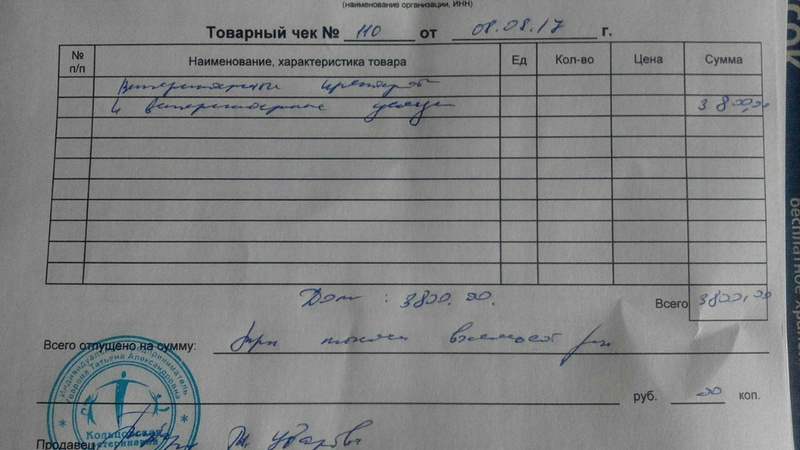 (наименование организации, ИНН)
Товарный чек № 110 от 08.08.17 г.
№ п/п Наименование, характеристика товара Ед Кол-во Цена Сумма
Ветеринарные препараты
и ветеринарные услуги 3 800,00
3800.00. Всего 3800,00
Всего отпущено на сумму: три тысячи восемьсот
руб. 00 коп.
Индивидуальный предприниматель
Уварова Татьяна Александровна
Кольцовская
ветеринария
Продавец Уварова
бесплатное